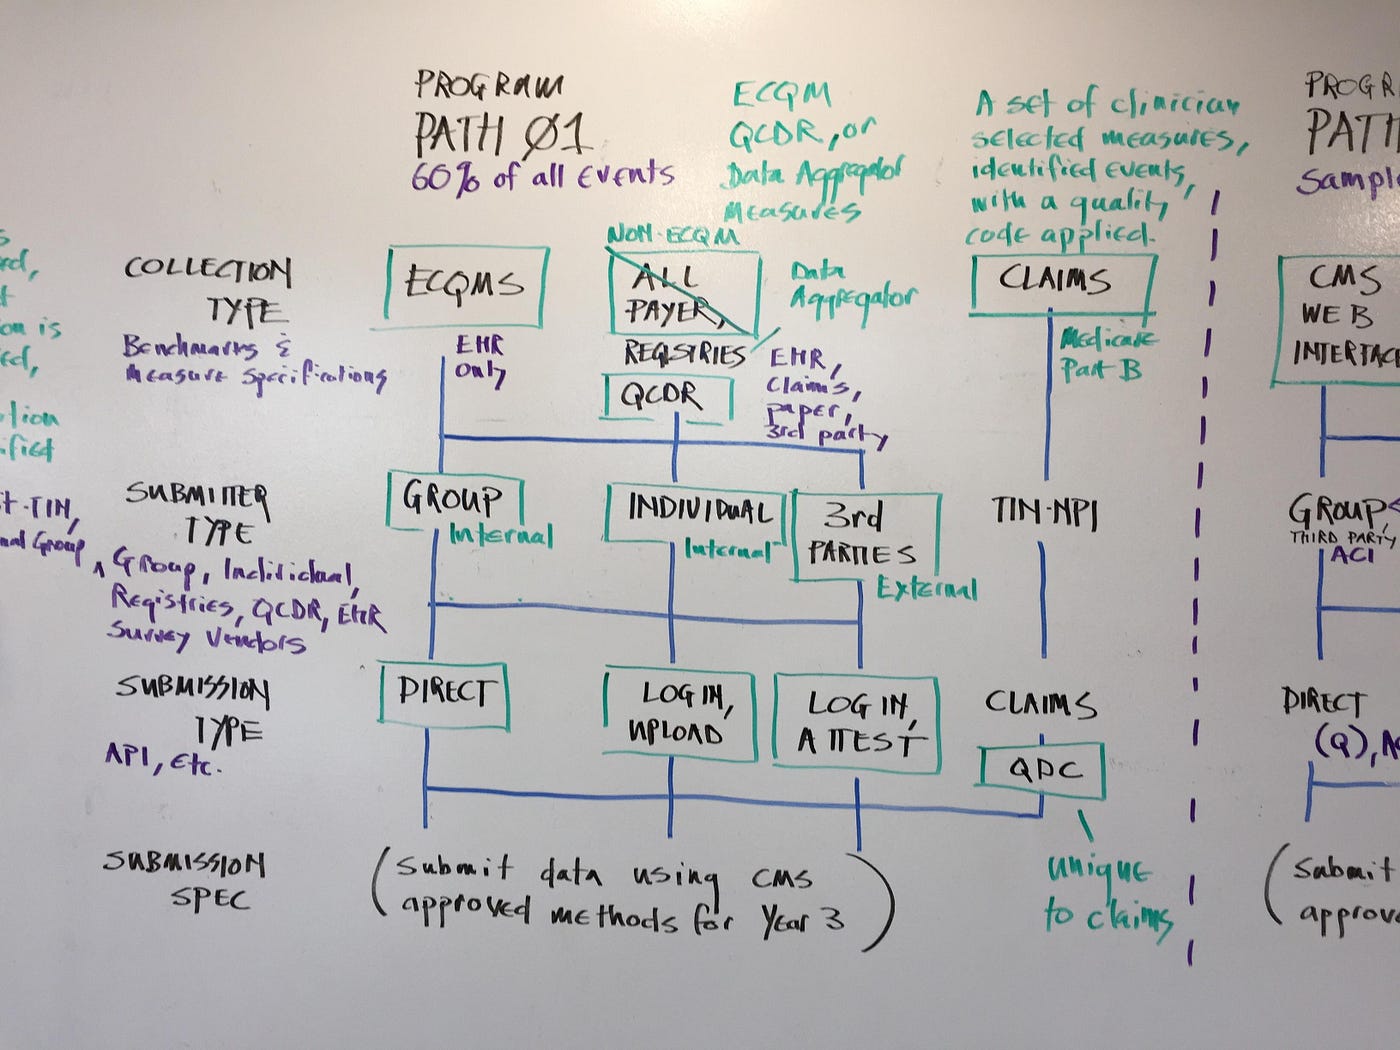 PROGRAM
PATH Ø1
60% of all Events
ECQM
QCDR, or
Data Aggregator
Measures
A set of clinician
selected measures,
identified events,
with a quality
code applied.
PROGR
PATH
Sample
COLLECTION
TYPE
Benchmarks &
Measure Specifications
ECQMS
EHR
only
NON-ECQM
ALL
PAYER,
REGISTRIES
QCDR
Data
Aggregator
EHR,
Claims,
paper,
3rd party
CLAIMS
Medicare
Part B
CMS
WEB
INTERFACE
on is
SUBMITTER
TYPE
Group, Individual,
Registries, QCDR, EHR
Survey Vendors
GROUP
Internal
INDIVIDUAL
Internal
3rd
PARTIES
External
TIN-NPI
GROUP
THIRD PARTY
ACI
t-TIN,
nal Group
SUBMISSION
TYPE
API, Etc.
DIRECT
LOG IN,
UPLOAD
LOG IN,
ATTEST
CLAIMS
QDC
unique
to claims
DIRECT
(Q), A
SUBMISSION
SPEC
(Submit data using CMS
approved methods for Year 3)
(Submit
approv